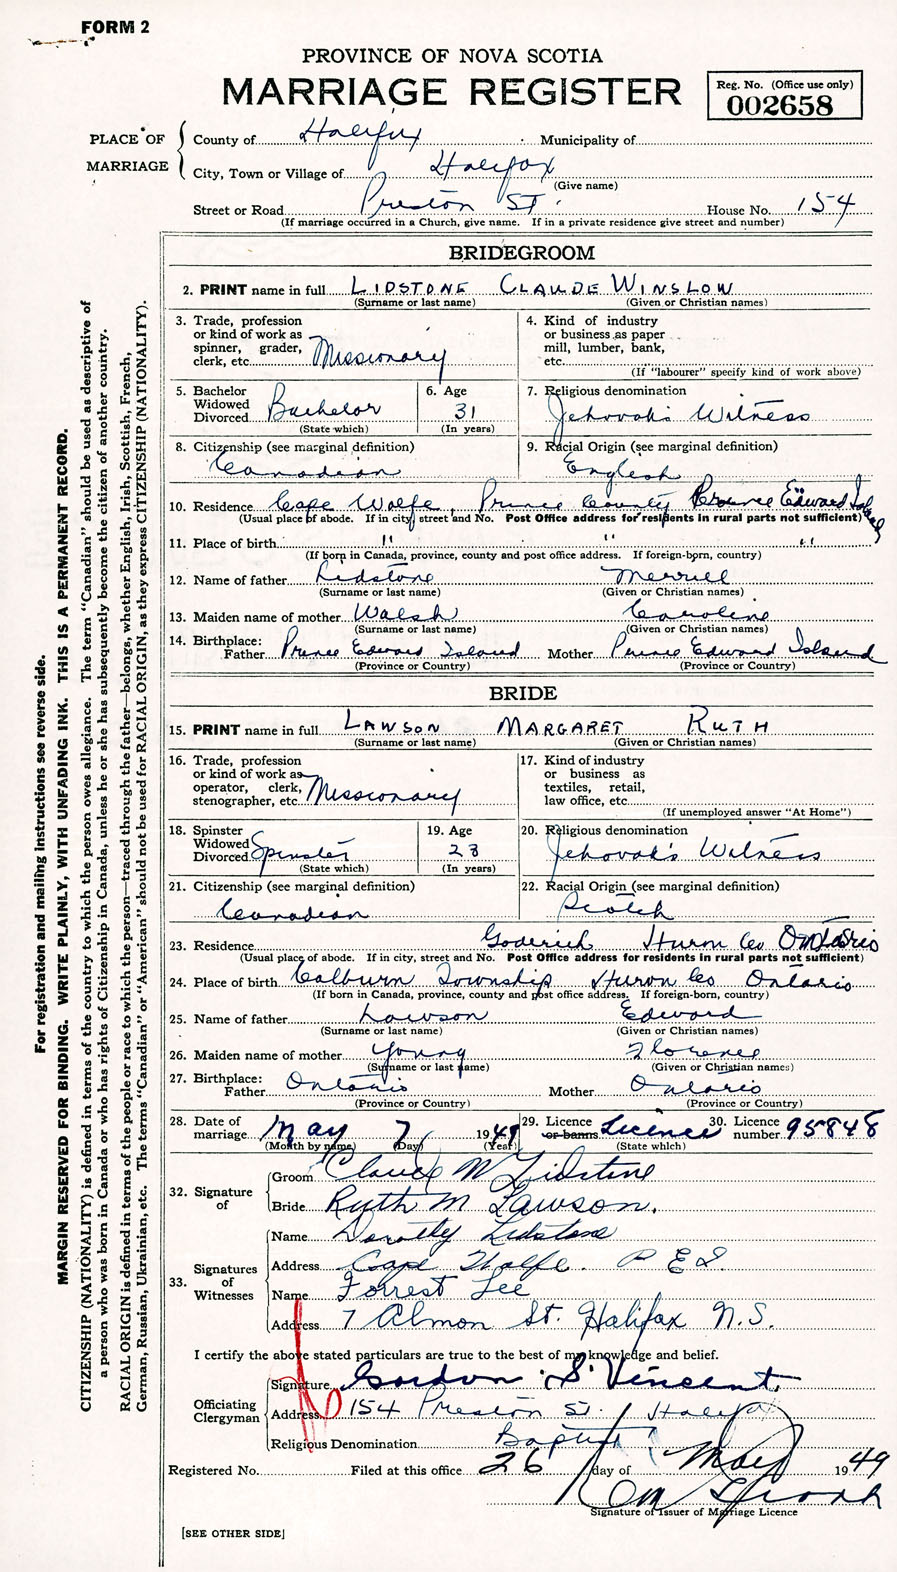 FORM 2
PROVINCE OF NOVA SCOTIA
MARRIAGE REGISTER
Reg. No. (Office use only)
002658
PLACE OF MARRIAGE
County of Halifax Municipality of
City, Town or Village of Halifax
(Give name)
Street or Road Preston St. House No. 154
(If marriage occurred in a Church, give name. If in a private residence give street and number)
BRIDEGROOM
2. PRINT name in full LIDSTONE CLAUDE WINSLOW
(Surname or last name) (Given or Christian names)
3. Trade, profession or kind of work as spinner, grader, clerk, etc. Missionary
4. Kind of industry or business as paper mill, lumber, bank, etc.
(If "labourer" specify kind of work above)
5. Bachelor Widowed Divorced Bachelor
(State which)
6. Age 31
(In years)
7. Religious denomination
Jehovah's Witness
8. Citizenship (see marginal definition)
Canadian
9. Racial Origin (see marginal definition)
English
10. Residence Cape Wolfe, Prince County Prince Edward Island
(Usual place of abode. If in city, street and No. Post Office address for residents in rural parts not sufficient)
11. Place of birth " " "
(If born in Canada, province, county and post office address. If foreign-born, country)
12. Name of father Lidstone Merrill
(Surname or last name) (Given or Christian names)
13. Maiden name of mother Walsh Caroline
(Surname or last name) (Given or Christian names)
14. Birthplace:
Father Prince Edward Island Mother Prince Edward Island
(Province or Country) (Province or Country)
BRIDE
15. PRINT name in full LAWSON MARGARET RUTH
(Surname or last name) (Given or Christian names)
16. Trade, profession or kind of work as operator, clerk, stenographer, etc. Missionary
17. Kind of industry or business as textiles, retail, law office, etc.
(If unemployed answer "At Home")
18. Spinster Widowed Divorced Spinster
(State which)
19. Age 28
(In years)
20. Religious denomination
Jehovah's Witness
21. Citizenship (see marginal definition)
Canadian
22. Racial Origin (see marginal definition)
Scotch
23. Residence Goderich Huron Co Ontario
(Usual place of abode. If in city, street and No. Post Office address for residents in rural parts not sufficient)
24. Place of birth Colburn Township Huron Co Ontario
(If born in Canada, province, county and post office address. If foreign-born, country)
25. Name of father Lawson Edward
(Surname or last name) (Given or Christian names)
26. Maiden name of mother Young Florence
(Surname or last name) (Given or Christian names)
27. Birthplace:
Father Ontario Mother Ontario
(Province or Country) (Province or Country)
28. Date of marriage May 7 1949
(Month by name) (Day) (Year)
29. Licence or banns Licence
(State which)
30. Licence number 95848
32. Signature of
Groom Claude W Lidstone
Bride Ruth M Lawson.
33. Signatures of Witnesses
Name Dorothy Lidstone
Address Cape Wolfe. P E I.
Name Forrest Lee
Address 7 Almon St. Halifax N.S.
I certify the above stated particulars are true to the best of my knowledge and belief.
Officiating Clergyman
Signature Gordon S. Vincent.
Address 154 Preston St. Halifax
Religious Denomination Baptist
Registered No. Filed at this office 26 day of May 1949
Signature of Issuer of Marriage Licence
[SEE OTHER SIDE]
For registration and mailing instructions see reverse side.
MARGIN RESERVED FOR BINDING. WRITE PLAINLY, WITH UNFADING INK. THIS IS A PERMANENT RECORD.
CITIZENSHIP (NATIONALITY) is defined in terms of the country to which the person owes allegiance. The term "Canadian" should be used as descriptive of
a person who was born in Canada or who has rights of Citizenship in Canada, unless he or she has subsequently become the citizen of another country.
RACIAL ORIGIN is defined in terms of the people or race to which the person—traced through the father—belongs, whether English, Irish, Scottish, French,
German, Russian, Ukrainian, etc. The terms "Canadian" or "American" should not be used for RACIAL ORIGIN, as they express CITIZENSHIP (NATIONALITY).